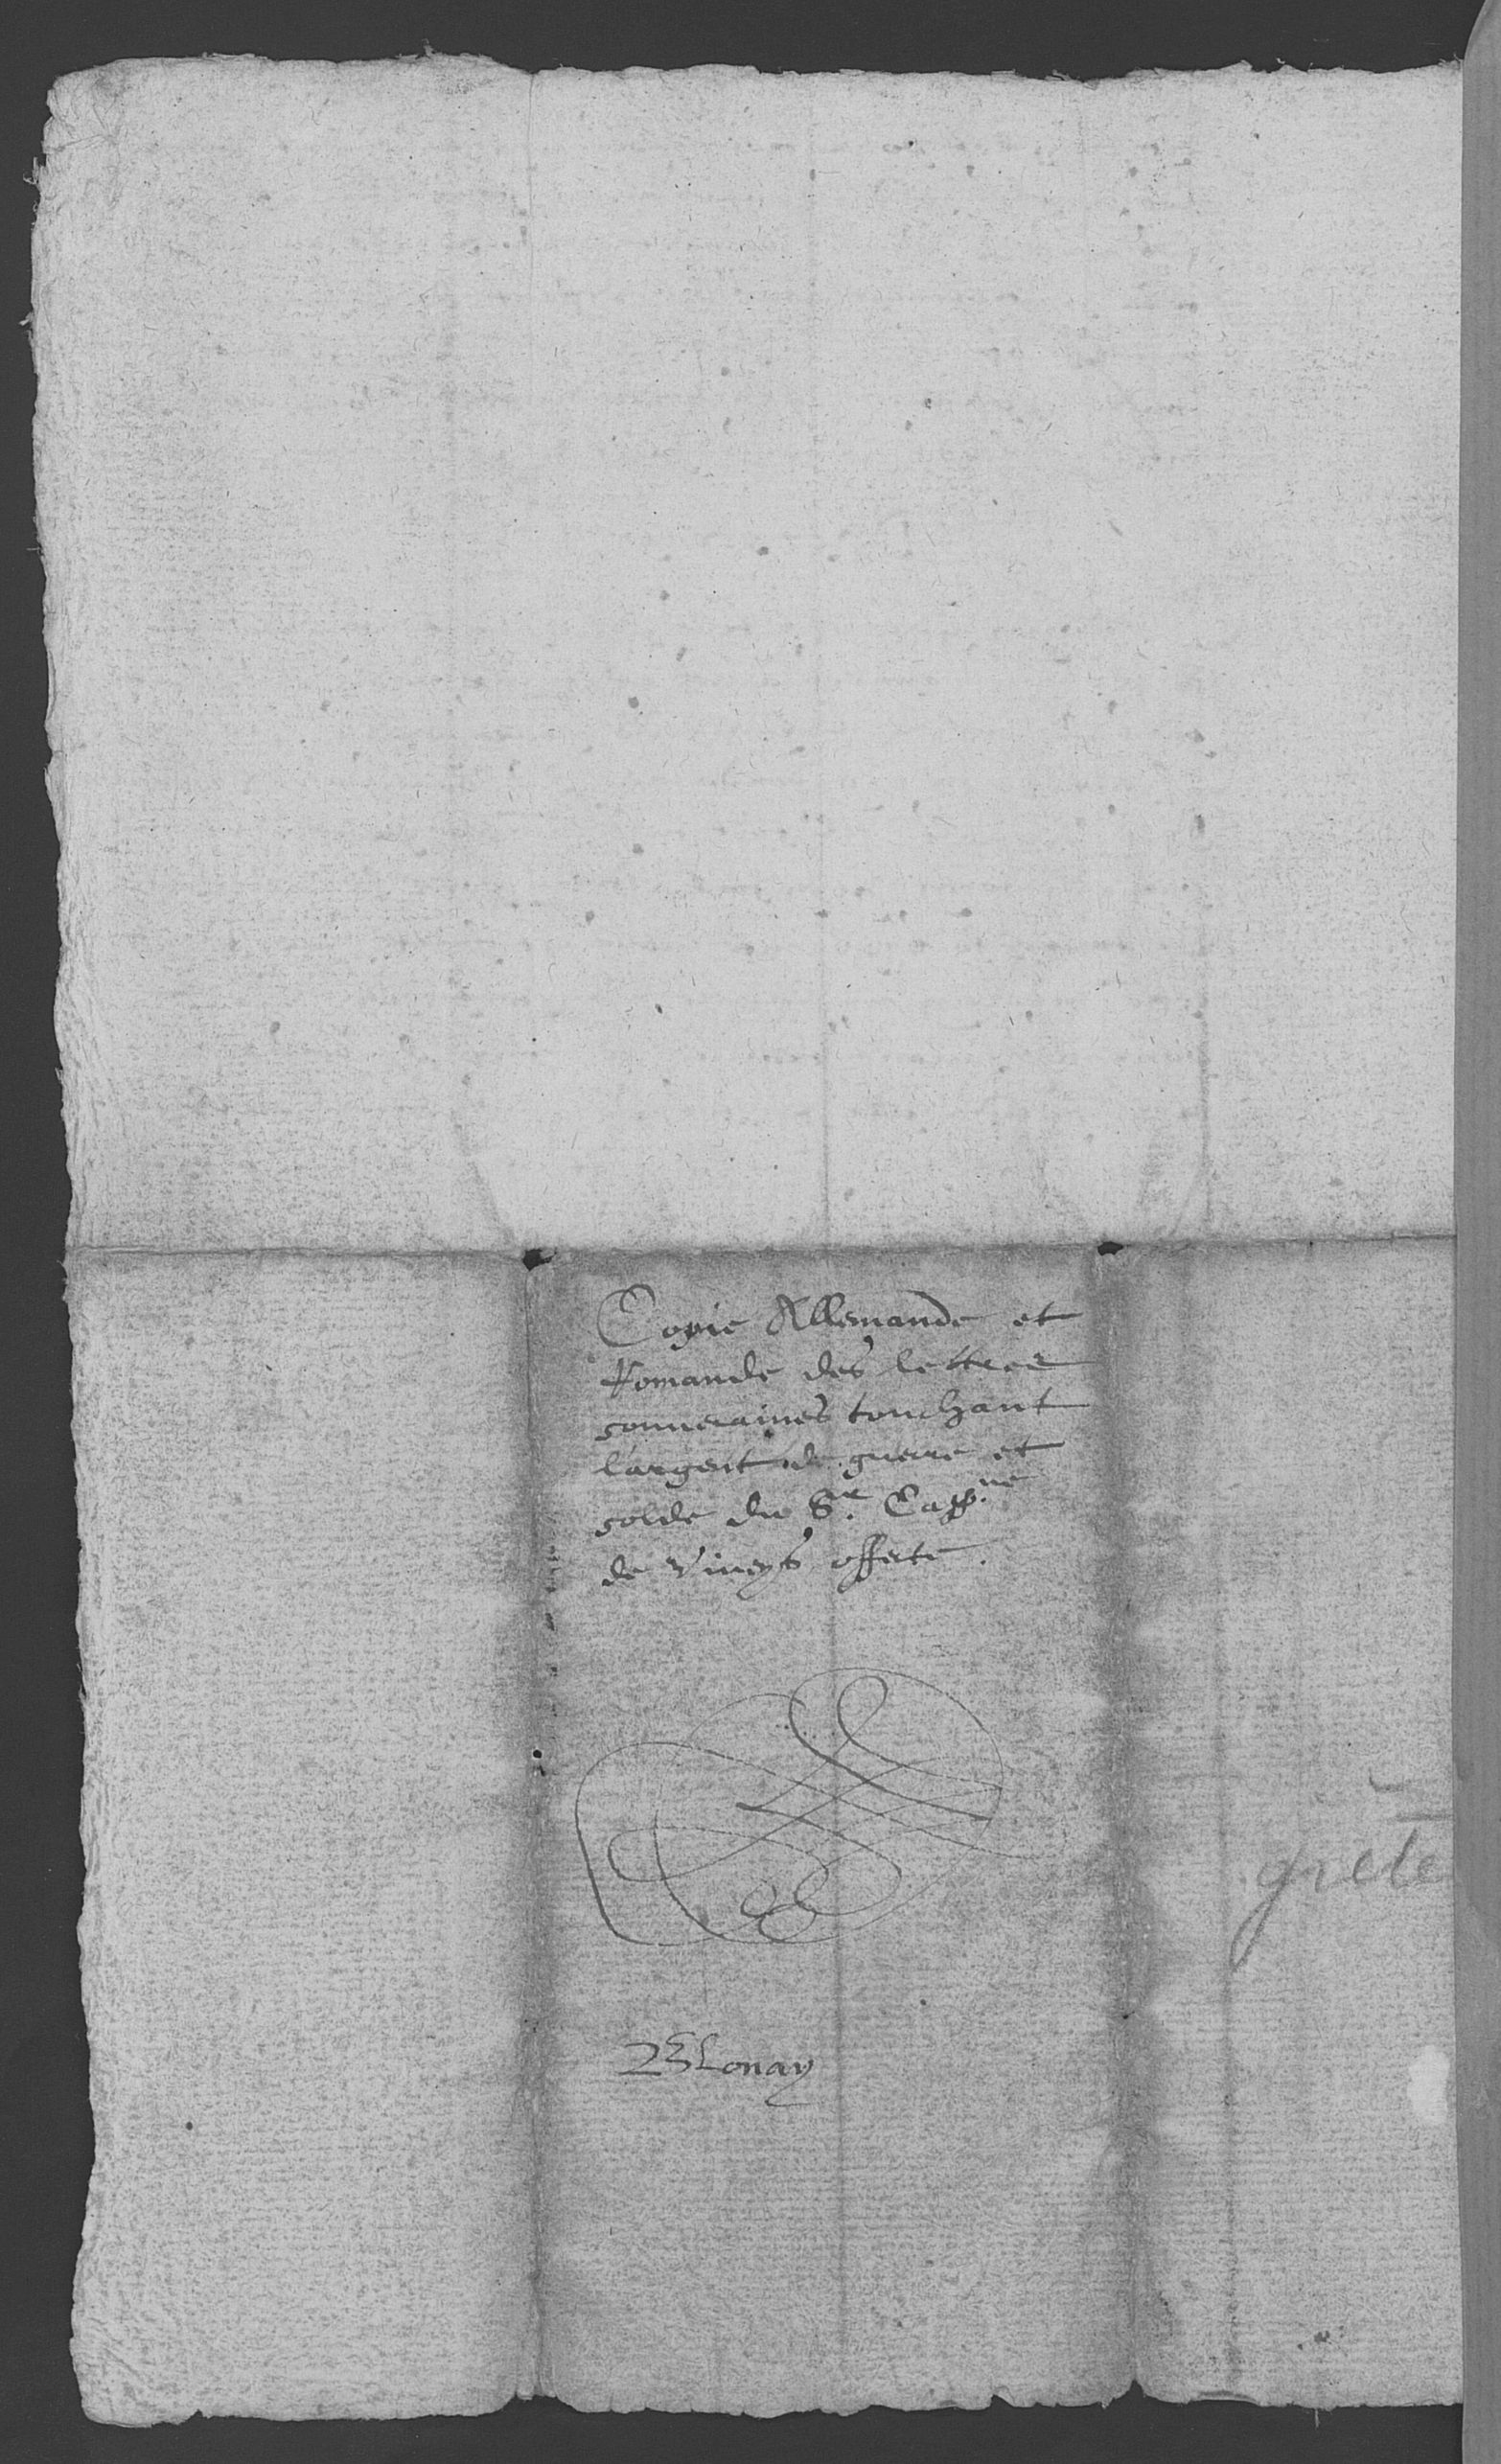 Copie Allemande et
Romande des lettres
souueraines touchant
l'argent de guerre et
solde du Sr. Capp.ne
de Vineys offerte.
Lonay
grete